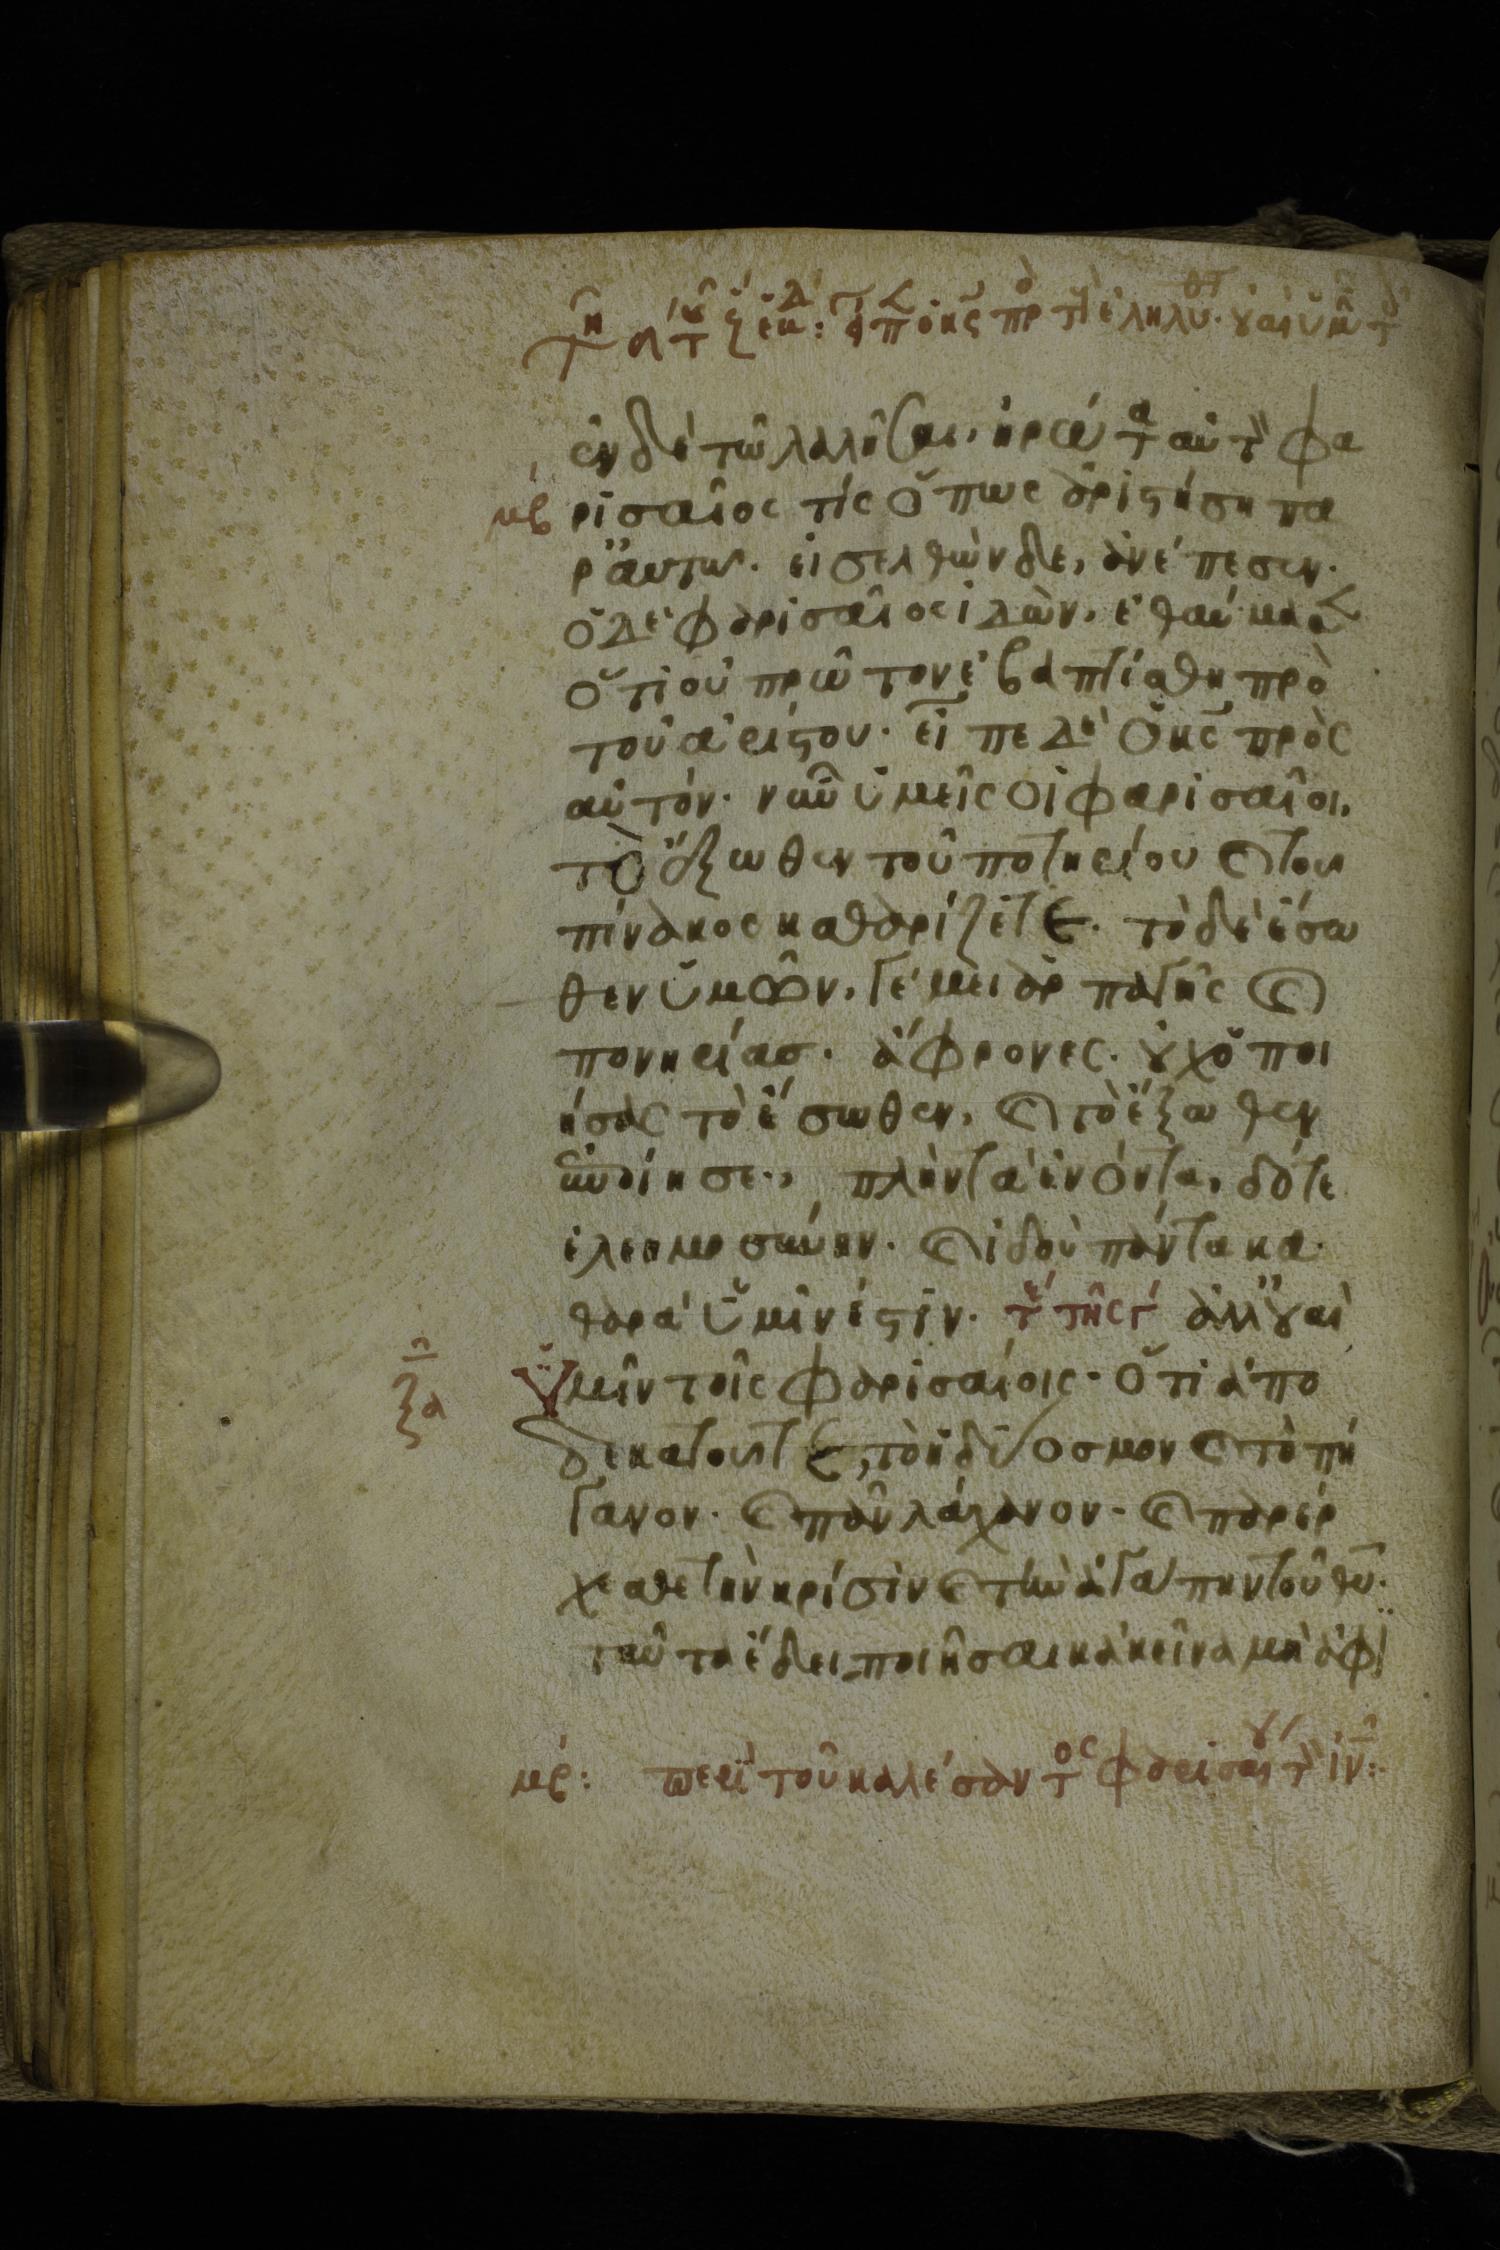 ἐν δὲ τῶ λαλῆσαι, ἠρώτα αὐτὸν φα
μβ
ρισαῖος τίς ὅπως ἀριστήση πα
ρ' αυτω. εἰσελθὼν δε, ἀνέπεσεν.
ὁ δὲ φαρισαῖος ἰδὼν, ἐθαύμασεν
ὅτι οὐ πρῶτον ἐβαπτίσθη πρὸ
τοῦ ἀρίστου. εἶπε δὲ ὁ κς πρὸς
αὐτόν. νῦν ὑμεῖς οἱ φαρισαῖοι,
τὸ ἔξωθεν τοῦ ποτηρίου ϗ του
πίνακος καθαρίζετε. τὸ δὲ ἔσω
θεν ὑμῶν, γέμει ἁρπαγῆς ϗ
πονηρίασ. ἄφρονες. οὐχ ὁ ποι
ήσας τὸ ἔσωθεν, ϗ τὸ ἔξωθεν
ἐποίησε., πλὴν τὰ ἐνόντα, δότε
ἐλεημοσύνην. ϗ ἰδοὺ πάντα κα
θαρὰ ὑμῖν ἐστιν. τῆς γ ἀλλ' οὐαὶ
ξα
ὑμῖν τοῖς φαρισαίοις. ὅτι ἀπο
δεκατοῦτε, τὸ ἡδύοσμον ϗ τὸ πή
γανον. ϗ πᾶν λάχανον. ϗ παρέρ
χεσθε τὴν κρίσιν ϗ τὴν ἀγάπην τοῦ θυ.
ταῦτα ἔδει ποιῆσαι κἀκεῖνα μὴ ἀφι
μβ: περὶ τοῦ καλέσαντος φαρισαίου τὸν ἰν: